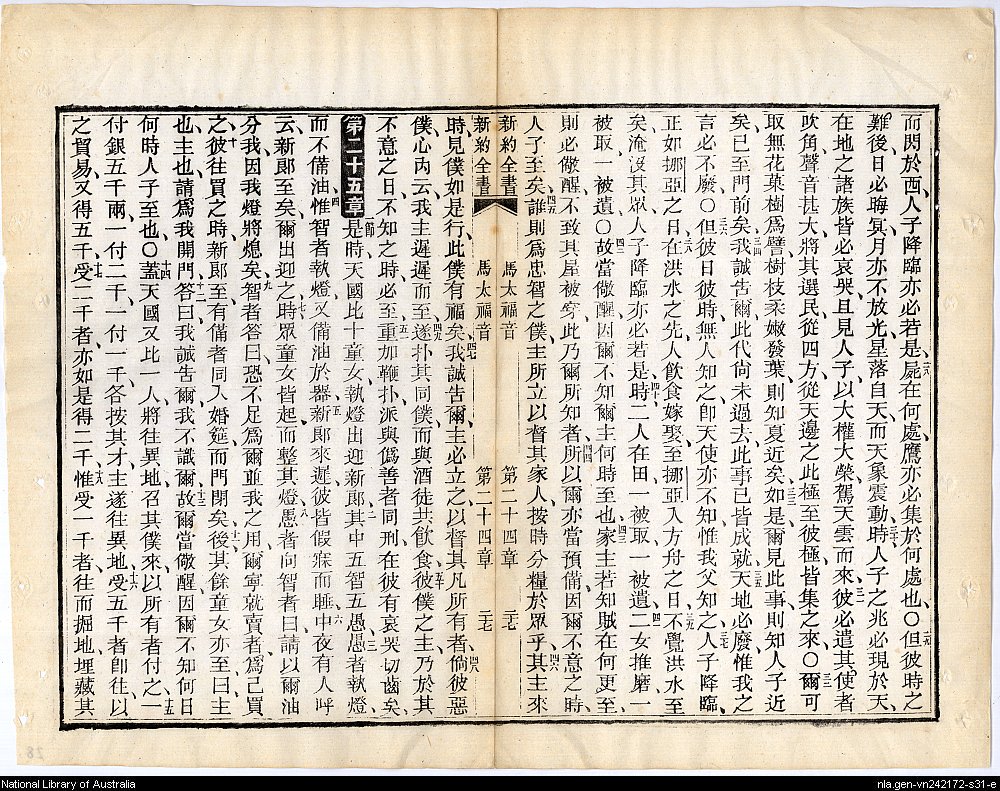 而閃於西人子降臨亦必若是二八屍在何處鷹亦必集於何處也〇二九但彼時之
難後日必晦冥月亦不放光星落自天而天象震動三十時人子之兆必現於天
在地之諸族皆必哀哭且見人子以大權大榮駕天雲而來三一彼必遣其使者
吹角聲音甚大將其選民從四方從天邊之此極至彼極皆集之來〇三二爾可
取無花菓樹爲譬樹枝柔嫩發葉則知夏近矣三三如是爾見此事則知人子近
矣已至門前矣三四我誠告爾此代尚未過去此事已皆成就三五天地必廢惟我之
言必不廢〇三六但彼日彼時無人知之卽天使亦不知惟我父知之三七人子降臨
正如挪亞之日三八在洪水之先人飲食嫁娶至挪亞入方舟之日三九不覺洪水至
矣淹沒其眾人子降臨亦必若是四十時二人在田一被取一被遺四一二女推磨一
被取一被遺〇四二故當儆醒因爾不知爾主何時至也四三家主若知賊在何更至
則必儆醒不致其屋被穿此乃爾所知者四四所以爾亦當預備因爾不意之時
人子至矣四五誰則爲忠智之僕主所立以督其家人按時分糧於眾乎四六其主來
新約全書 馬太福音 第二十四章 二七
新約全書 馬太福音 第二十四章 二七
時見僕如是行此僕有福矣四七我誠告爾主必立之以督其凡所有者四八倘彼惡
僕心內云我主遲遲而至四九遂扑其同僕而與酒徒共飲食五十彼僕之主乃於其
不意之日不知之時必至五一重加鞭扑派與僞善者同刑在彼有哀哭切齒矣
第二十五章一節是時天國比十童女執燈出迎新郎二其中五智五愚三愚者執燈
而不備油四惟智者執燈又備油於器五新郎來遲彼皆假寐而睡六中夜有人呼
云新郎至矣爾出迎之七時眾童女皆起而整其燈八愚者向智者曰請以爾油
分我因我燈將熄矣九智者答曰恐不足爲爾並我之用爾寧就賣者爲己買
之十彼往買之時新郎至有備者同入婚筵而門閉矣十一後其餘童女亦至曰主
也主也請爲我開門十二答曰我誠告爾我不識爾十三故爾當儆醒因爾不知何日
何時人子至也〇十四蓋天國又比一人將往異地召其僕來以所有者付之十五一
付銀五千兩一付二千一付一千各按其才主遂往異地十六受五千者卽往以
之貿易又得五千十七受二千者亦如是得二千十八惟受一千者往而掘地埋藏其
National Library of Australia
nla.gen-vn242172-s31-e